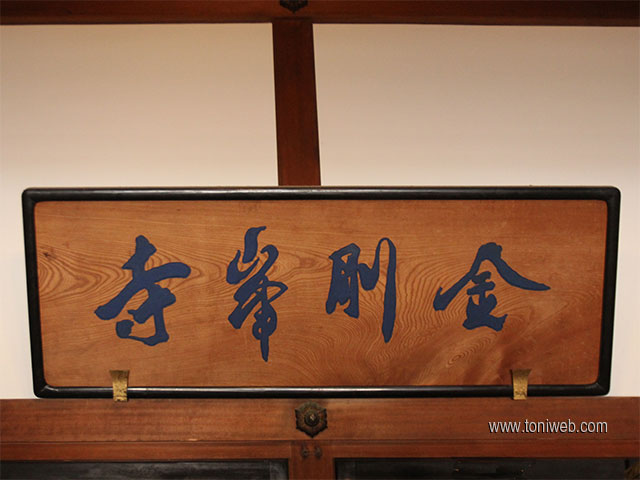 金剛峯寺
www.toniweb.com